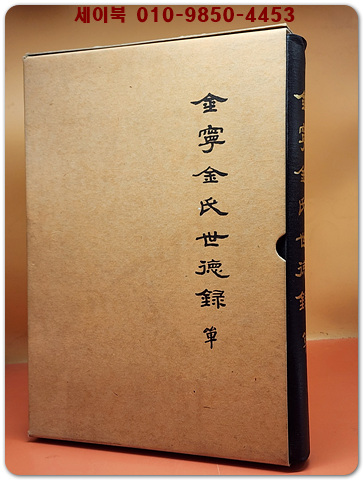 세이북 010-9850-4453
金寧金氏世德錄 單
金寧金氏世德錄